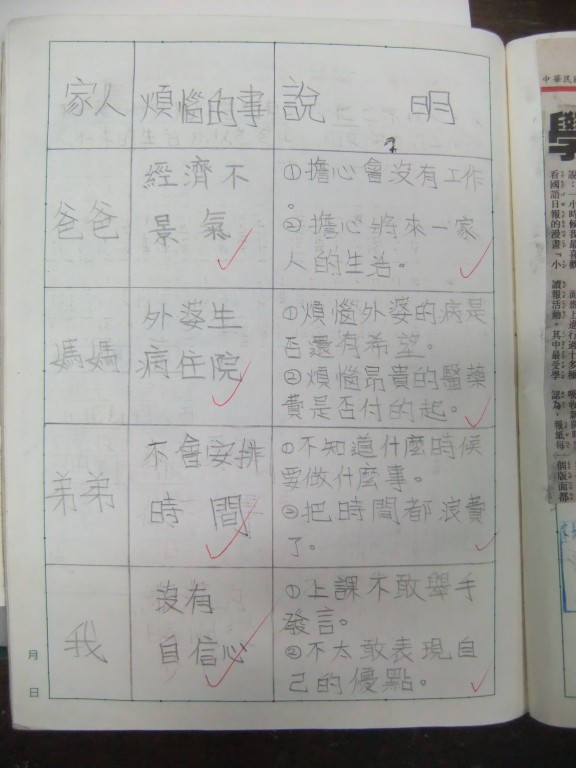 家人 煩惱的事 說明
爸爸
經濟不
景氣
①擔心會沒有工作
。
②擔心將來一家
人的生活。
媽媽
外婆生
病住院
①煩惱外婆的病是
否還有希望。
②煩惱昂貴的醫藥
費是否付的起。
弟弟
不會安排
時間
①不知道什麼時候
要做什麼事。
②把時間都浪費
了。
我
沒有
自信心
①上課不敢舉手
發言。
②不太敢表現自
己的優點。
月
日
中華民
學
說:「小時候我最喜歡
看國語日報的漫畫『小
讀報活動。其中最受學
認為,報紙每一個版面都